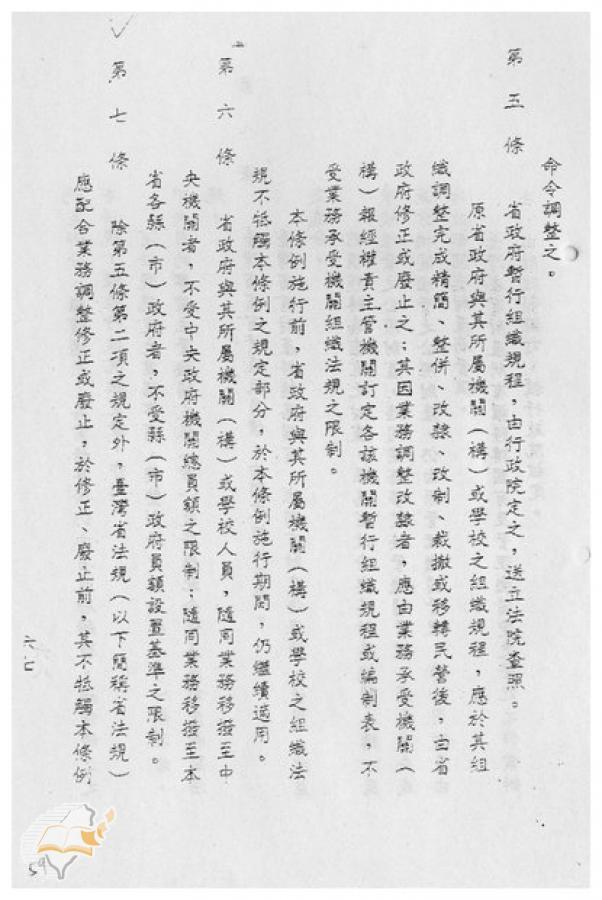 命令調整之。
第五條
省政府暫行組織規程，由行政院定之，送立法院查照。
原省政府與其所屬機關（構）或學校之組織規程，應於其組
織調整完成精簡、整併、改隸、改制、裁撤或移轉民營後，由省
政府修正或廢止之；其因業務調整改隸者，應由業務承受機關（
構）報經權責主管機關訂定各該機關暫行組織規程或編制表，不
受業務承受機關組織法規之限制。
本條例施行前，省政府與其所屬機關（構）或學校之組織法
規不牴觸本條例之規定部分，於本條例施行期間，仍繼續適用。
第六條
省政府與其所屬機關（構）或學校人員，隨同業務移撥至中
央機關者，不受中央政府機關總員額之限制；隨同業務移撥至本
省各縣（市）政府者，不受縣（市）政府員額設置基準之限制。
第七條
除第五條第二項之規定外，臺灣省法規（以下簡稱省法規）
應配合業務調整修正或廢止，於修正、廢止前，其不牴觸本條例
六七
59